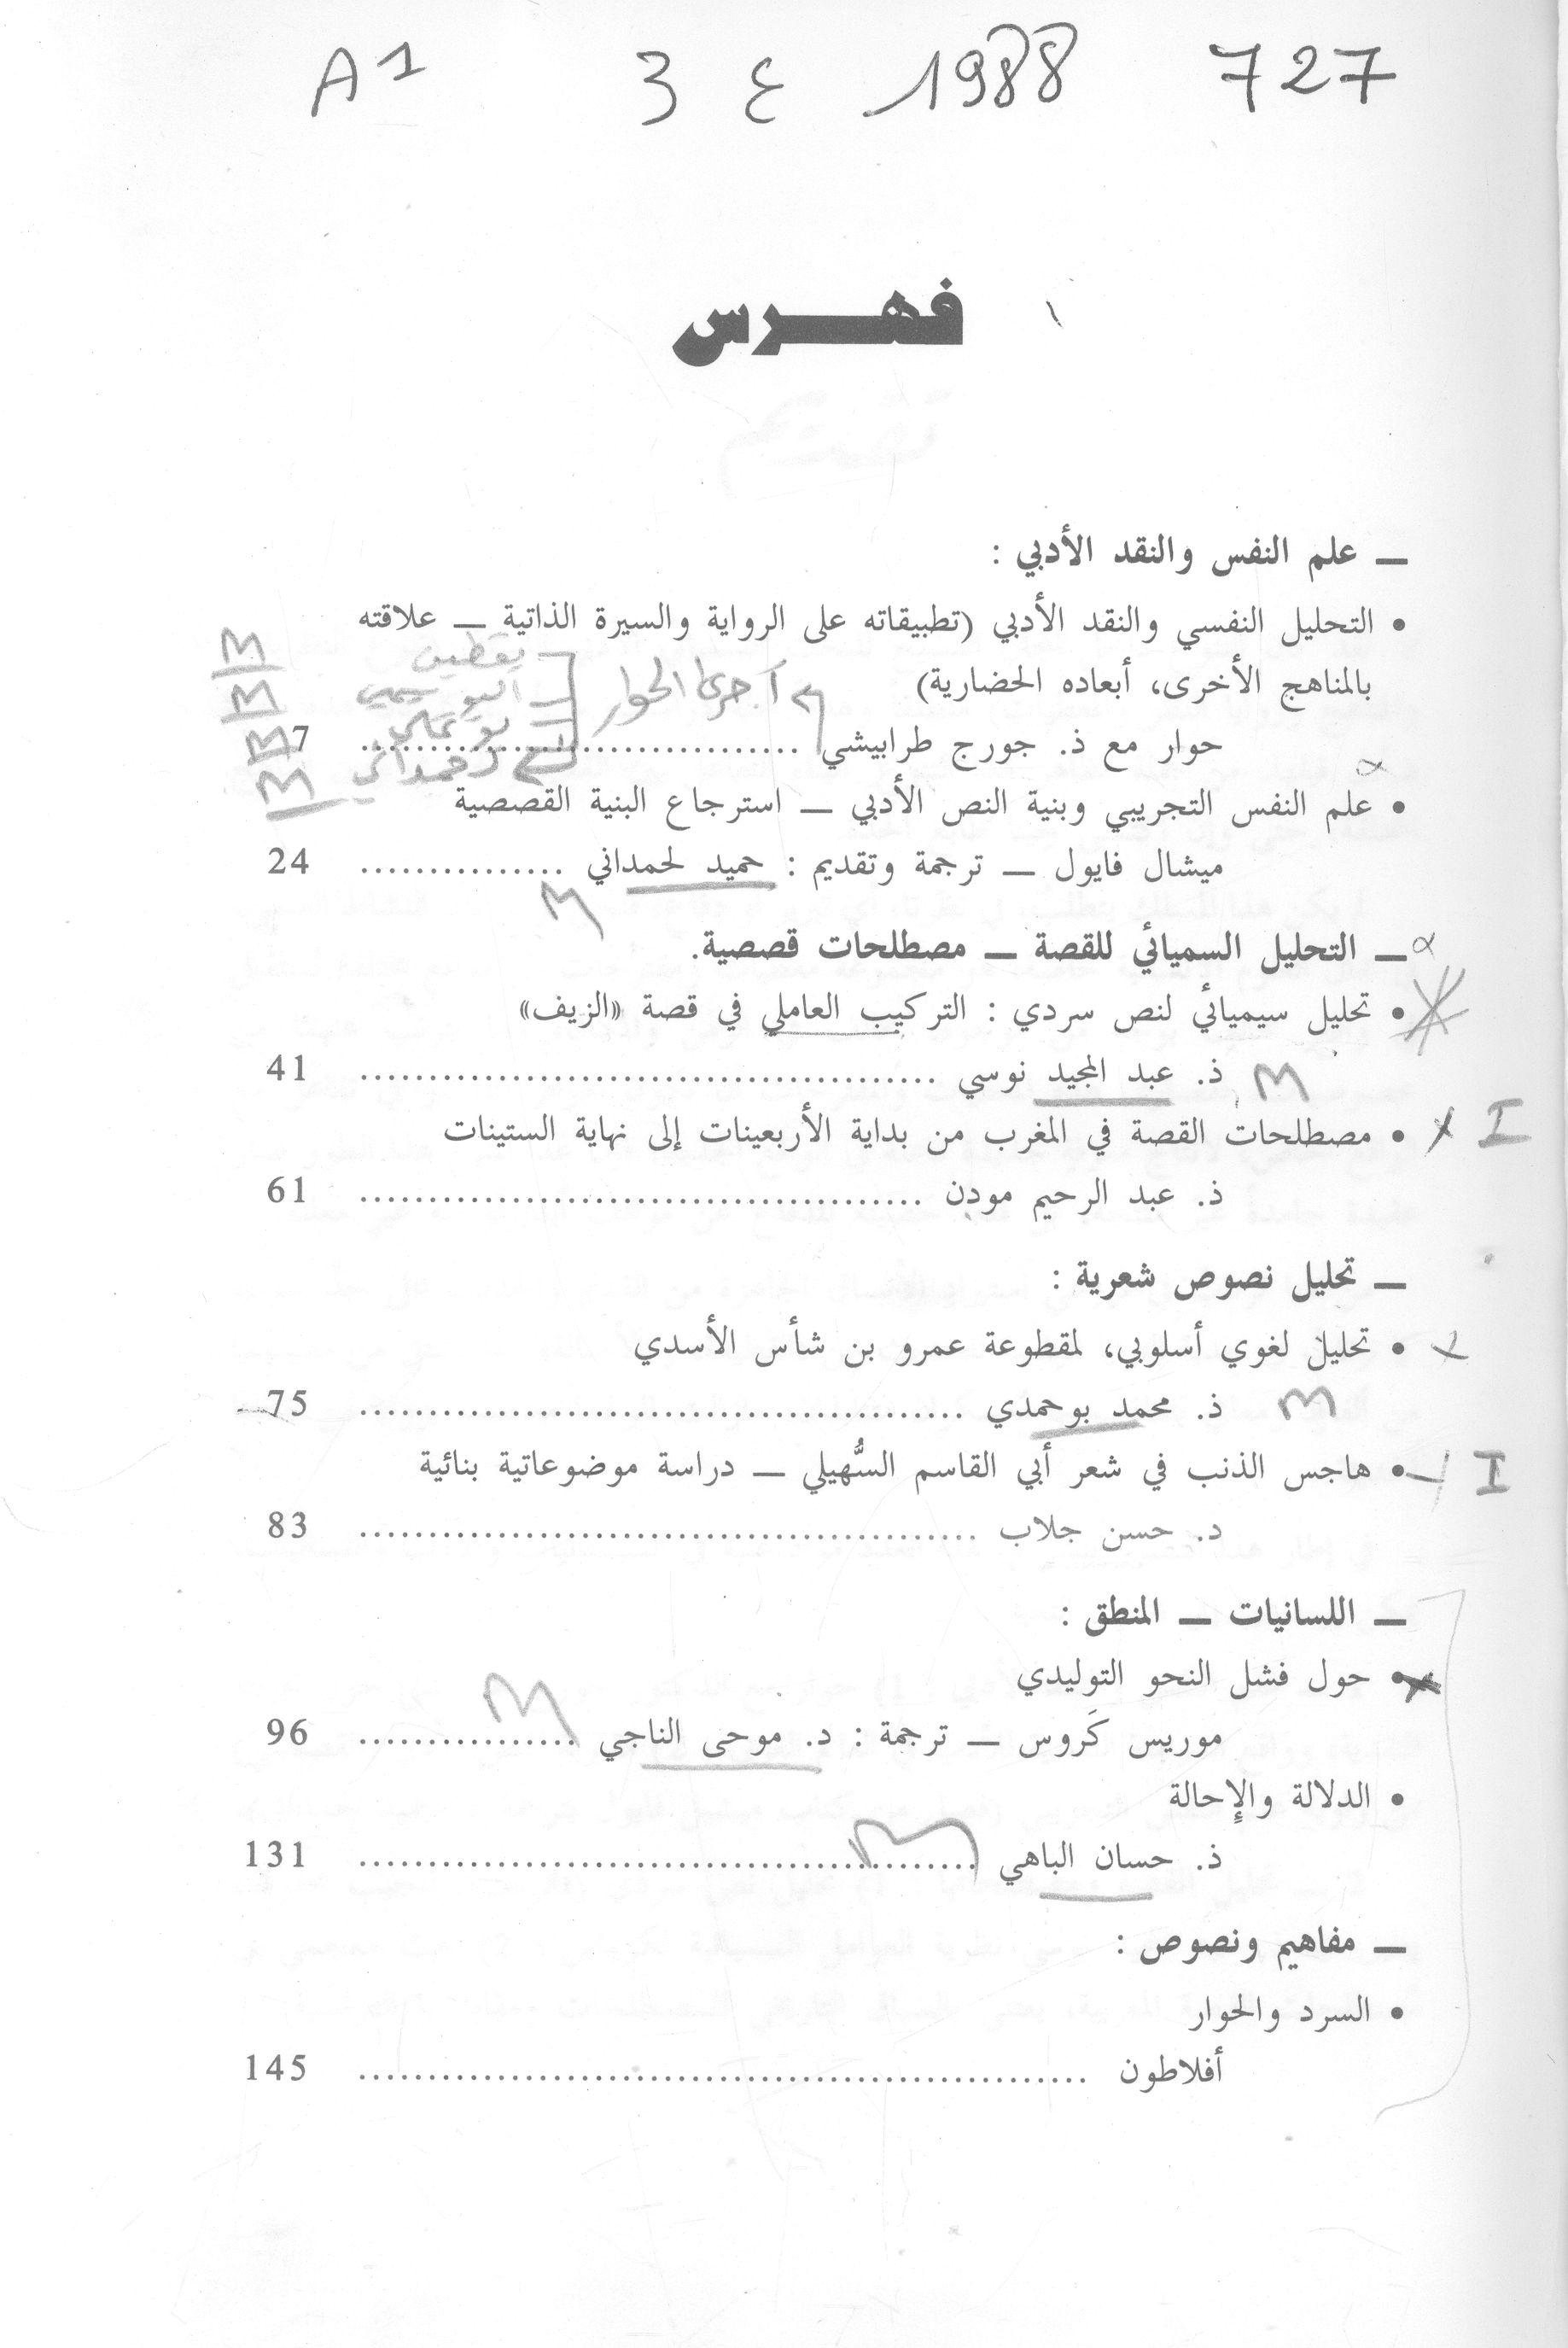 A1 3 ع 1988 727
فهرس
— علم النفس والنقد الأدبي :
• التحليل النفسي والنقد الأدبي (تطبيقاته على الرواية والسيرة الذاتية — علاقته
M
بالمناهج الأخرى، أبعاده الحضارية) أجرى الحوار
M
حوار مع ذ. جورج طرابيشي ........................ 7
M
لحمداني M
• علم النفس التجريبي وبنية النص الأدبي — استرجاع البنية القصصية
ميشال فايول — ترجمة وتقديم : حميد لحمداني ............... 24
M
— التحليل السميائي للقصة — مصطلحات قصصية.
• تحليل سيميائي لنص سردي : التركيب العاملي في قصة «الزيف»
M ذ. عبد المجيد نوسي .......................................... 41
I x • مصطلحات القصة في المغرب من بداية الأربعينات إلى نهاية الستينات
ذ. عبد الرحيم مودن ......................................... 61
— تحليل نصوص شعرية :
x • تحليل لغوي أسلوبي، لمقطوعة عمرو بن شأس الأسدي
M ذ. محمد بوحمدي ............................................ 75
I • هاجس الذنب في شعر أبي القاسم السُّهيلي — دراسة موضوعاتية بنائية
د. حسن جلاب ............................................. 83
— اللسانيات — المنطق :
• حول فشل النحو التوليدي
M
موريس كَروس — ترجمة : د. موحى الناجي ................ 96
• الدلالة والإحالة
M
ذ. حسان الباهي ............................................. 131
— مفاهيم ونصوص :
• السرد والحوار
أفلاطون ..................................................... 145